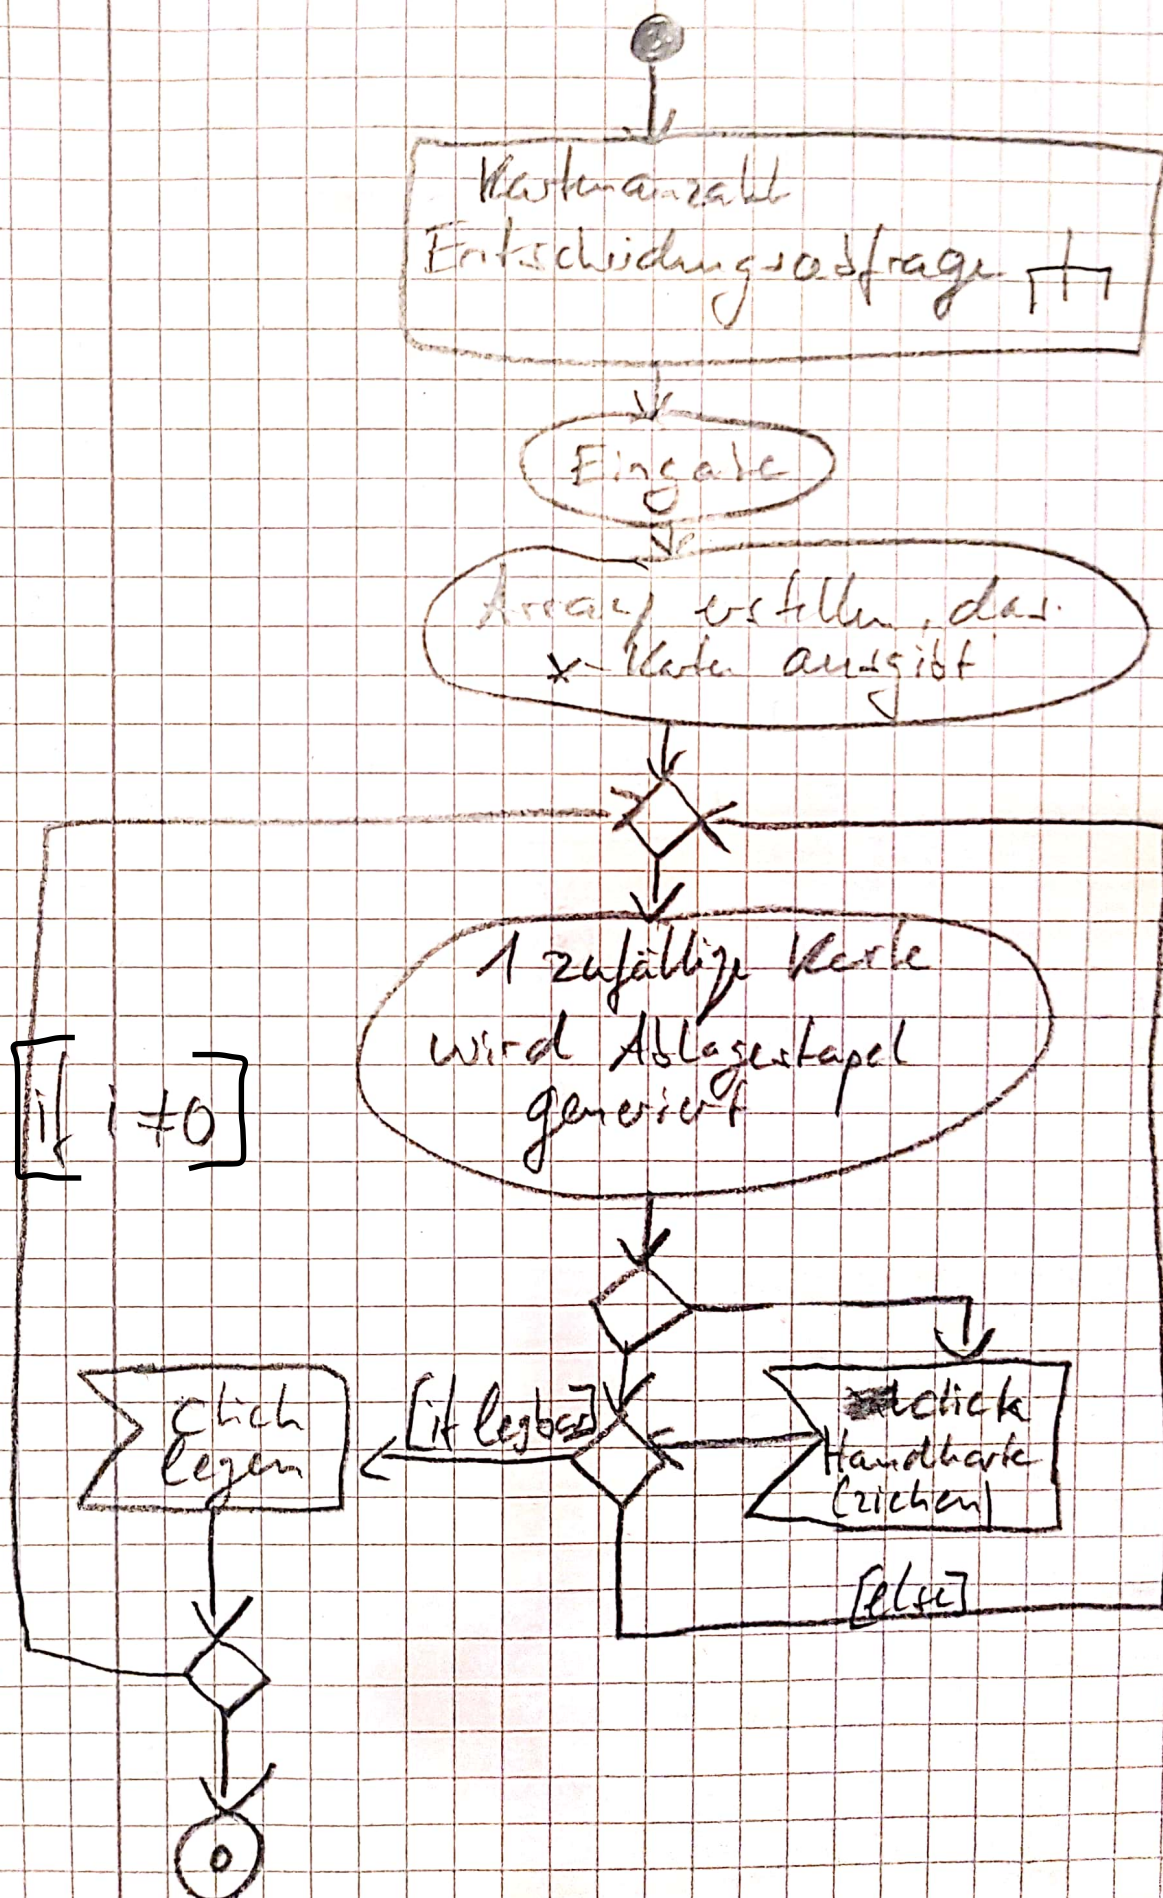 Kartenanzahl
Entscheidungsabfrage
Eingabe
Array erstellen, das
x-Karten ausgibt
1 zufällige Karte
wird Ablagestapel
generiert
[if i ≠ 0]
[if legbar]
Click
legen
Click
Handkarte
(ziehen)
[else]